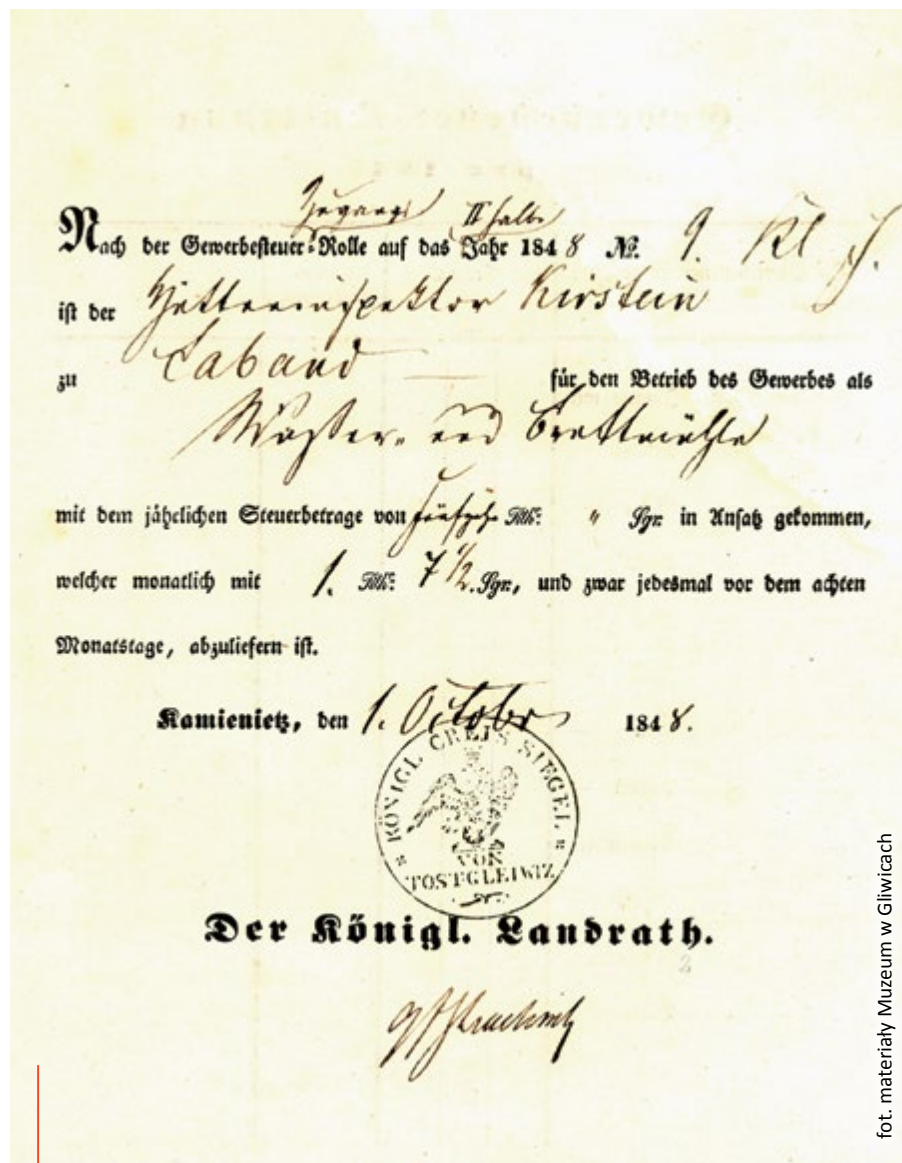 Zugangs II halbe
Nach der Gewerbesteuer-Rolle auf das Jahr 1848 No. 9. Kl
ist der Hütteninspektor Kirstein
zu Laband — für den Betrieb des Gewerbes als
Wasser- und Brettmühle
mit dem jährlichen Steuerbetrage von fünfzehn Rth: " Sgr. in Ansatz gekommen,
welcher monatlich mit 1. Rth: 7 1/2. Sgr., und zwar jedesmal vor dem achten
Monatstage, abzuliefern ist.
Kamienietz, den 1. Octobr 1848.
KÖNIGL CREIS SIEGEL
VON
TOST GLEIWIZ
Der Königl. Landrath.
2
fot. materiały Muzeum w Gliwicach